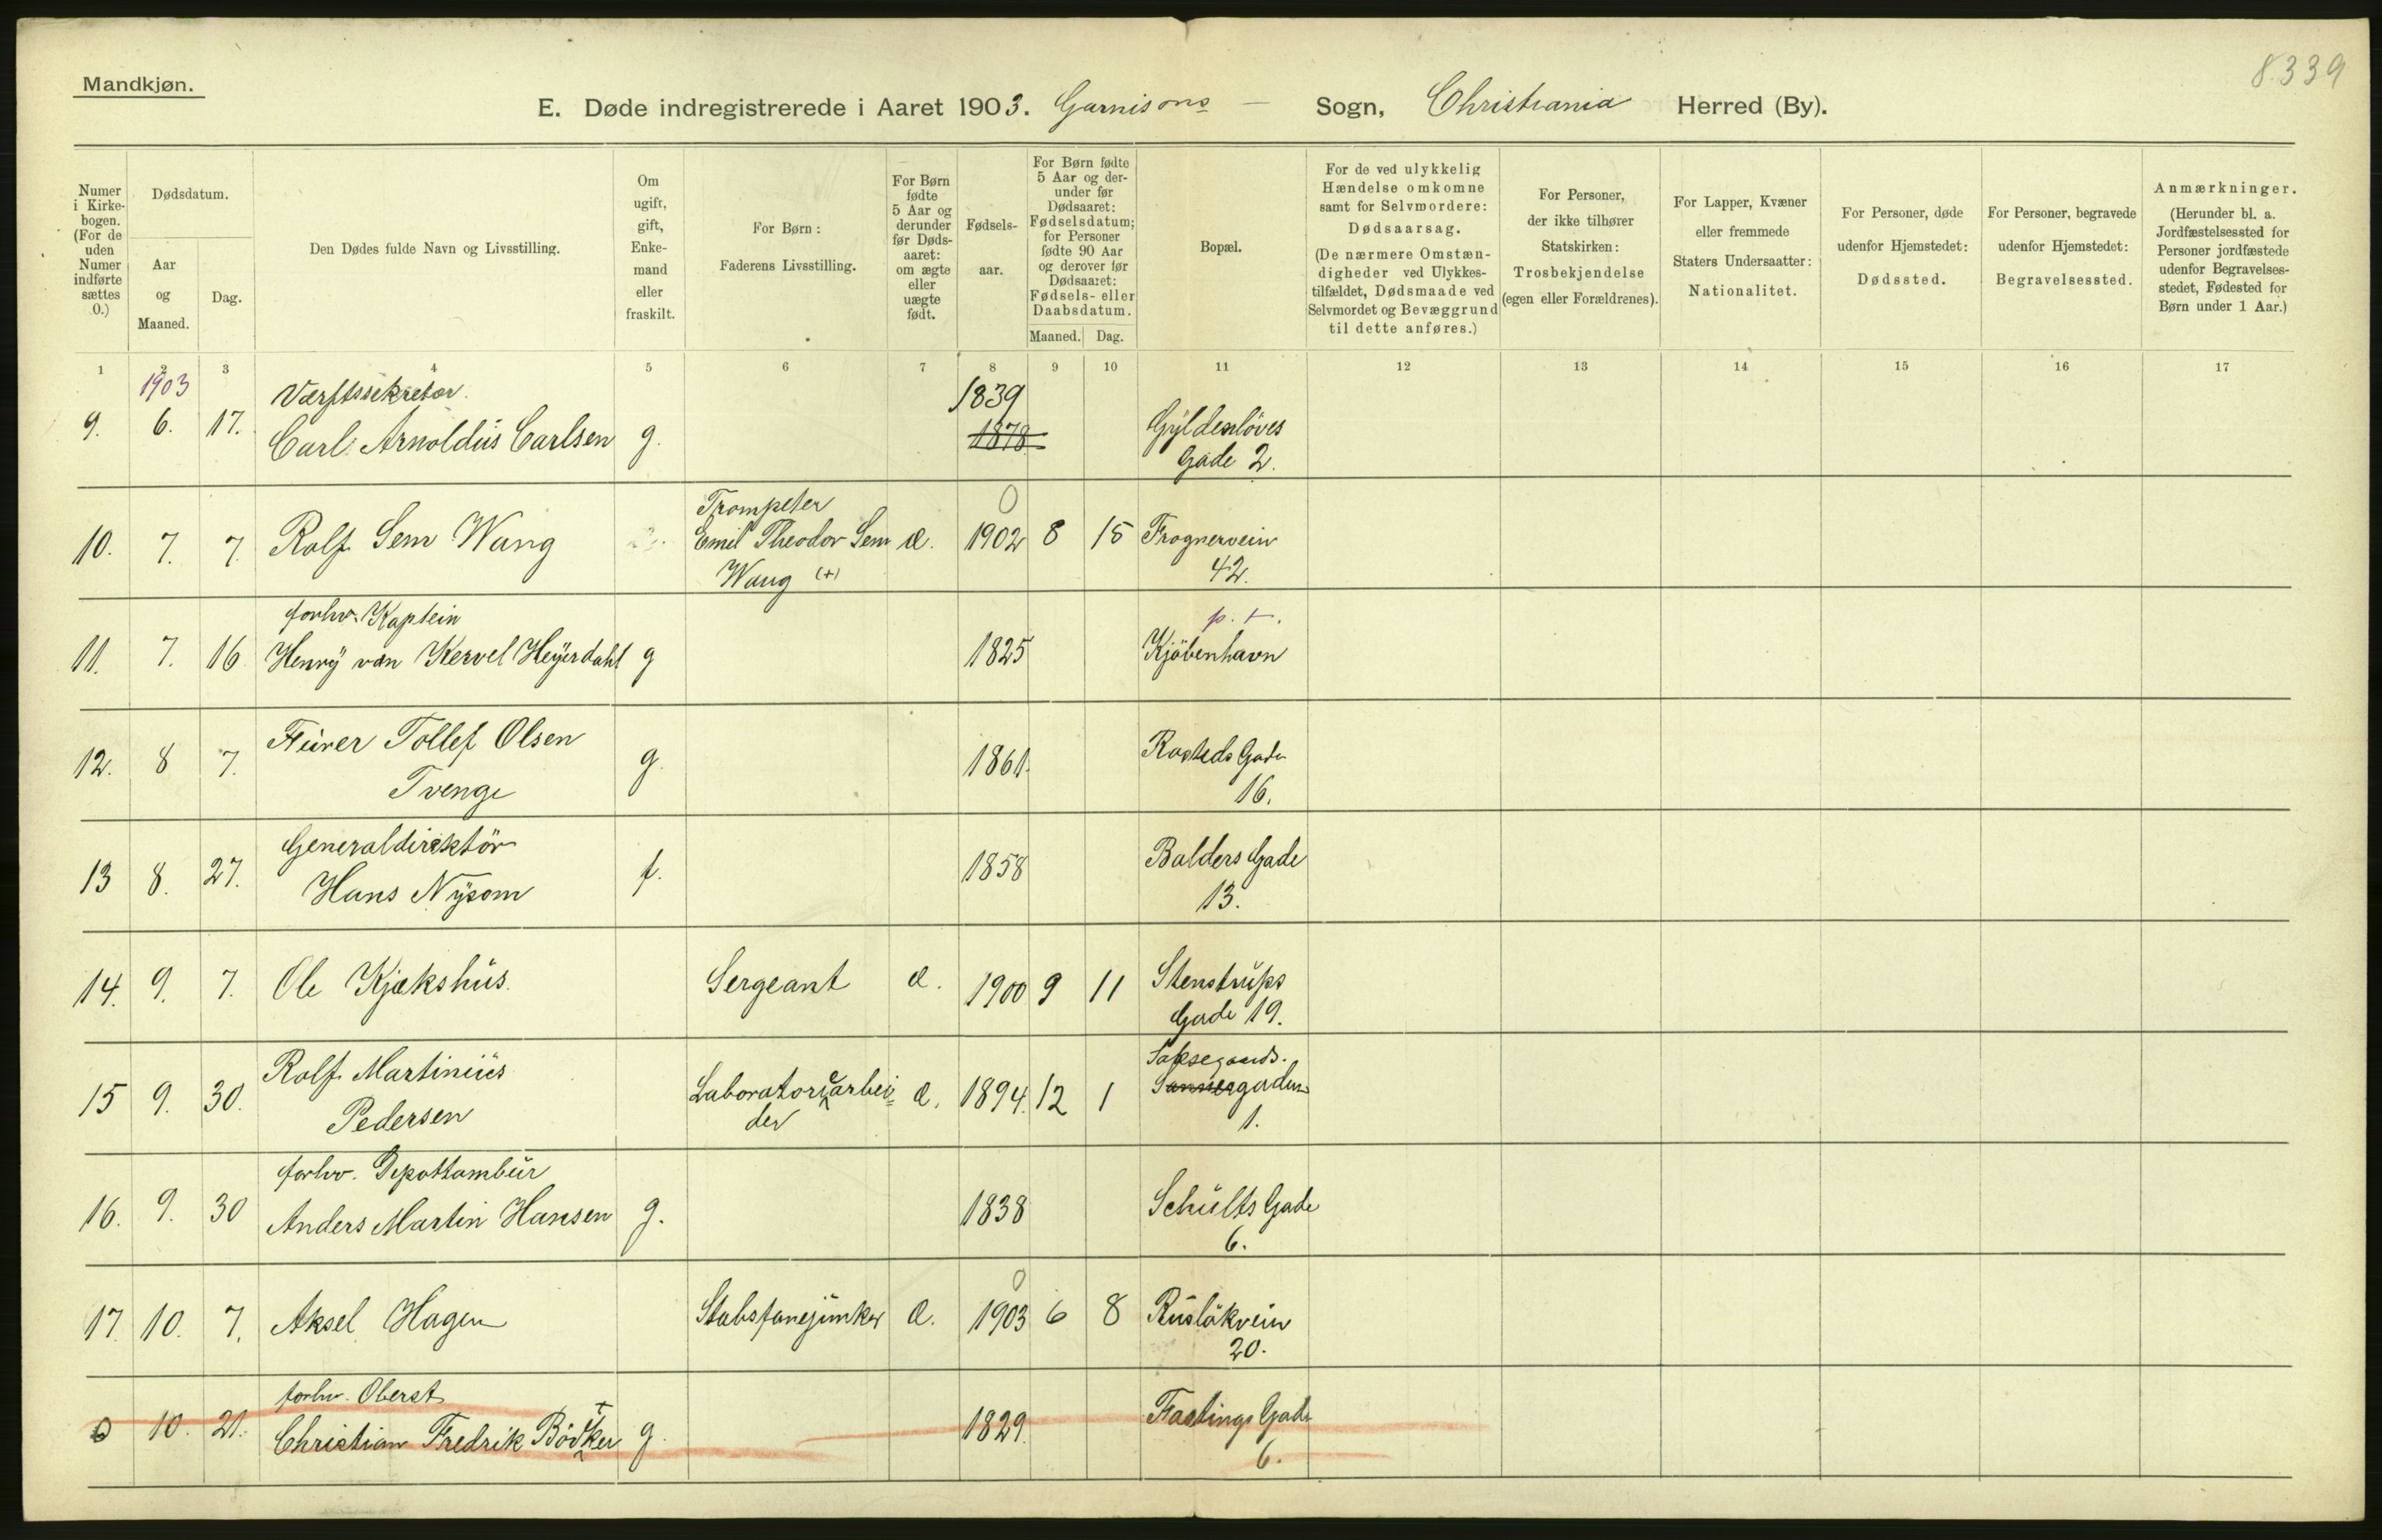 8.339
Mandkjøn.
E. Døde indregistrerede i Aaret 1903. Garnisons - Sogn, Christiania Herred (By).
Numer i Kirke-bogen. (For de uden Numer indførte sættes 0.)
Dødsdatum.
Aar og Maaned.
Dag.
Den Dødes fulde Navn og Livsstilling.
Om ugift, gift, Enke-mand eller fraskilt.
For Børn: Faderens Livsstilling.
For Børn fødte 5 Aar og derunder før Døds-aaret: om ægte eller uægte født.
Fødsels-aar.
For Børn fødte 5 Aar og der-under før Dødsaaret: Fødselsdatum; for Personer fødte 90 Aar og derover før Dødsaaret: Fødsels- eller Daabsdatum.
Maaned. Dag.
Bopæl.
For de ved ulykkelig Hændelse omkomne samt for Selvmordere: Dødsaarsag. (De nærmere Omstæn-digheder ved Ulykkes-tilfældet, Dødsmaade ved Selvmordet og Bevæggrund til dette anføres.)
For Personer, der ikke tilhører Statskirken: Trosbekjendelse (egen eller Forældrenes).
For Lapper, Kvæner eller fremmede Staters Undersaatter: Nationalitet.
For Personer, døde udenfor Hjemstedet: Dødssted.
For Personer, begravede udenfor Hjemstedet: Begravelsessted.
Anmærkninger. (Herunder bl. a. Jordfæstelsessted for Personer jordfæstede udenfor Begravelses-stedet, Fødested for Børn under 1 Aar.)
1 2 3 4 5 6 7 8 9 10 11 12 13 14 15 16 17
1903 Værftssekretær 1839
9. 6. 17. Carl Arnoldus Carlsen g. 1878 Gyldenløves
Gade 2.
Trompeter 0
10. 7. 7. Rolf Sem Wang Emil Theodor Sem æ. 1902 8 15 Frognervein
Wang (+) 42.
forhv. Kaptein p. t.
11. 7. 16 Henry van Kervel Heyerdahl g 1825 Kjöbenhavn
12. 8 7. Furer Tollef Olsen g. 1861. Rosteds Gade
Tvenge 16.
Generaldirektör
13 8. 27. Hans Nysom f. 1858 Balders Gade
13.
14. 9. 7. Ole Kjækshus. Sergeant æ. 1900 9 11 Stenstrups
Gade 19.
Rolf Martinius
15 9. 30. Pedersen Laboratoriearbei= æ. 1894. 12 1 gaden
der 1.
forhv. Depottambur
16. 9. 30 Anders Martin Hansen g. 1838 Schults Gade
6.
0
17. 10. 7. Aksel Hagen Stabsfanejunker æ. 1903 6 8 Rusløkvein
20.
forhv. Oberst
0 10. 21. Christian Fredrik Bödtker g. 1829. Fastings Gade
6.